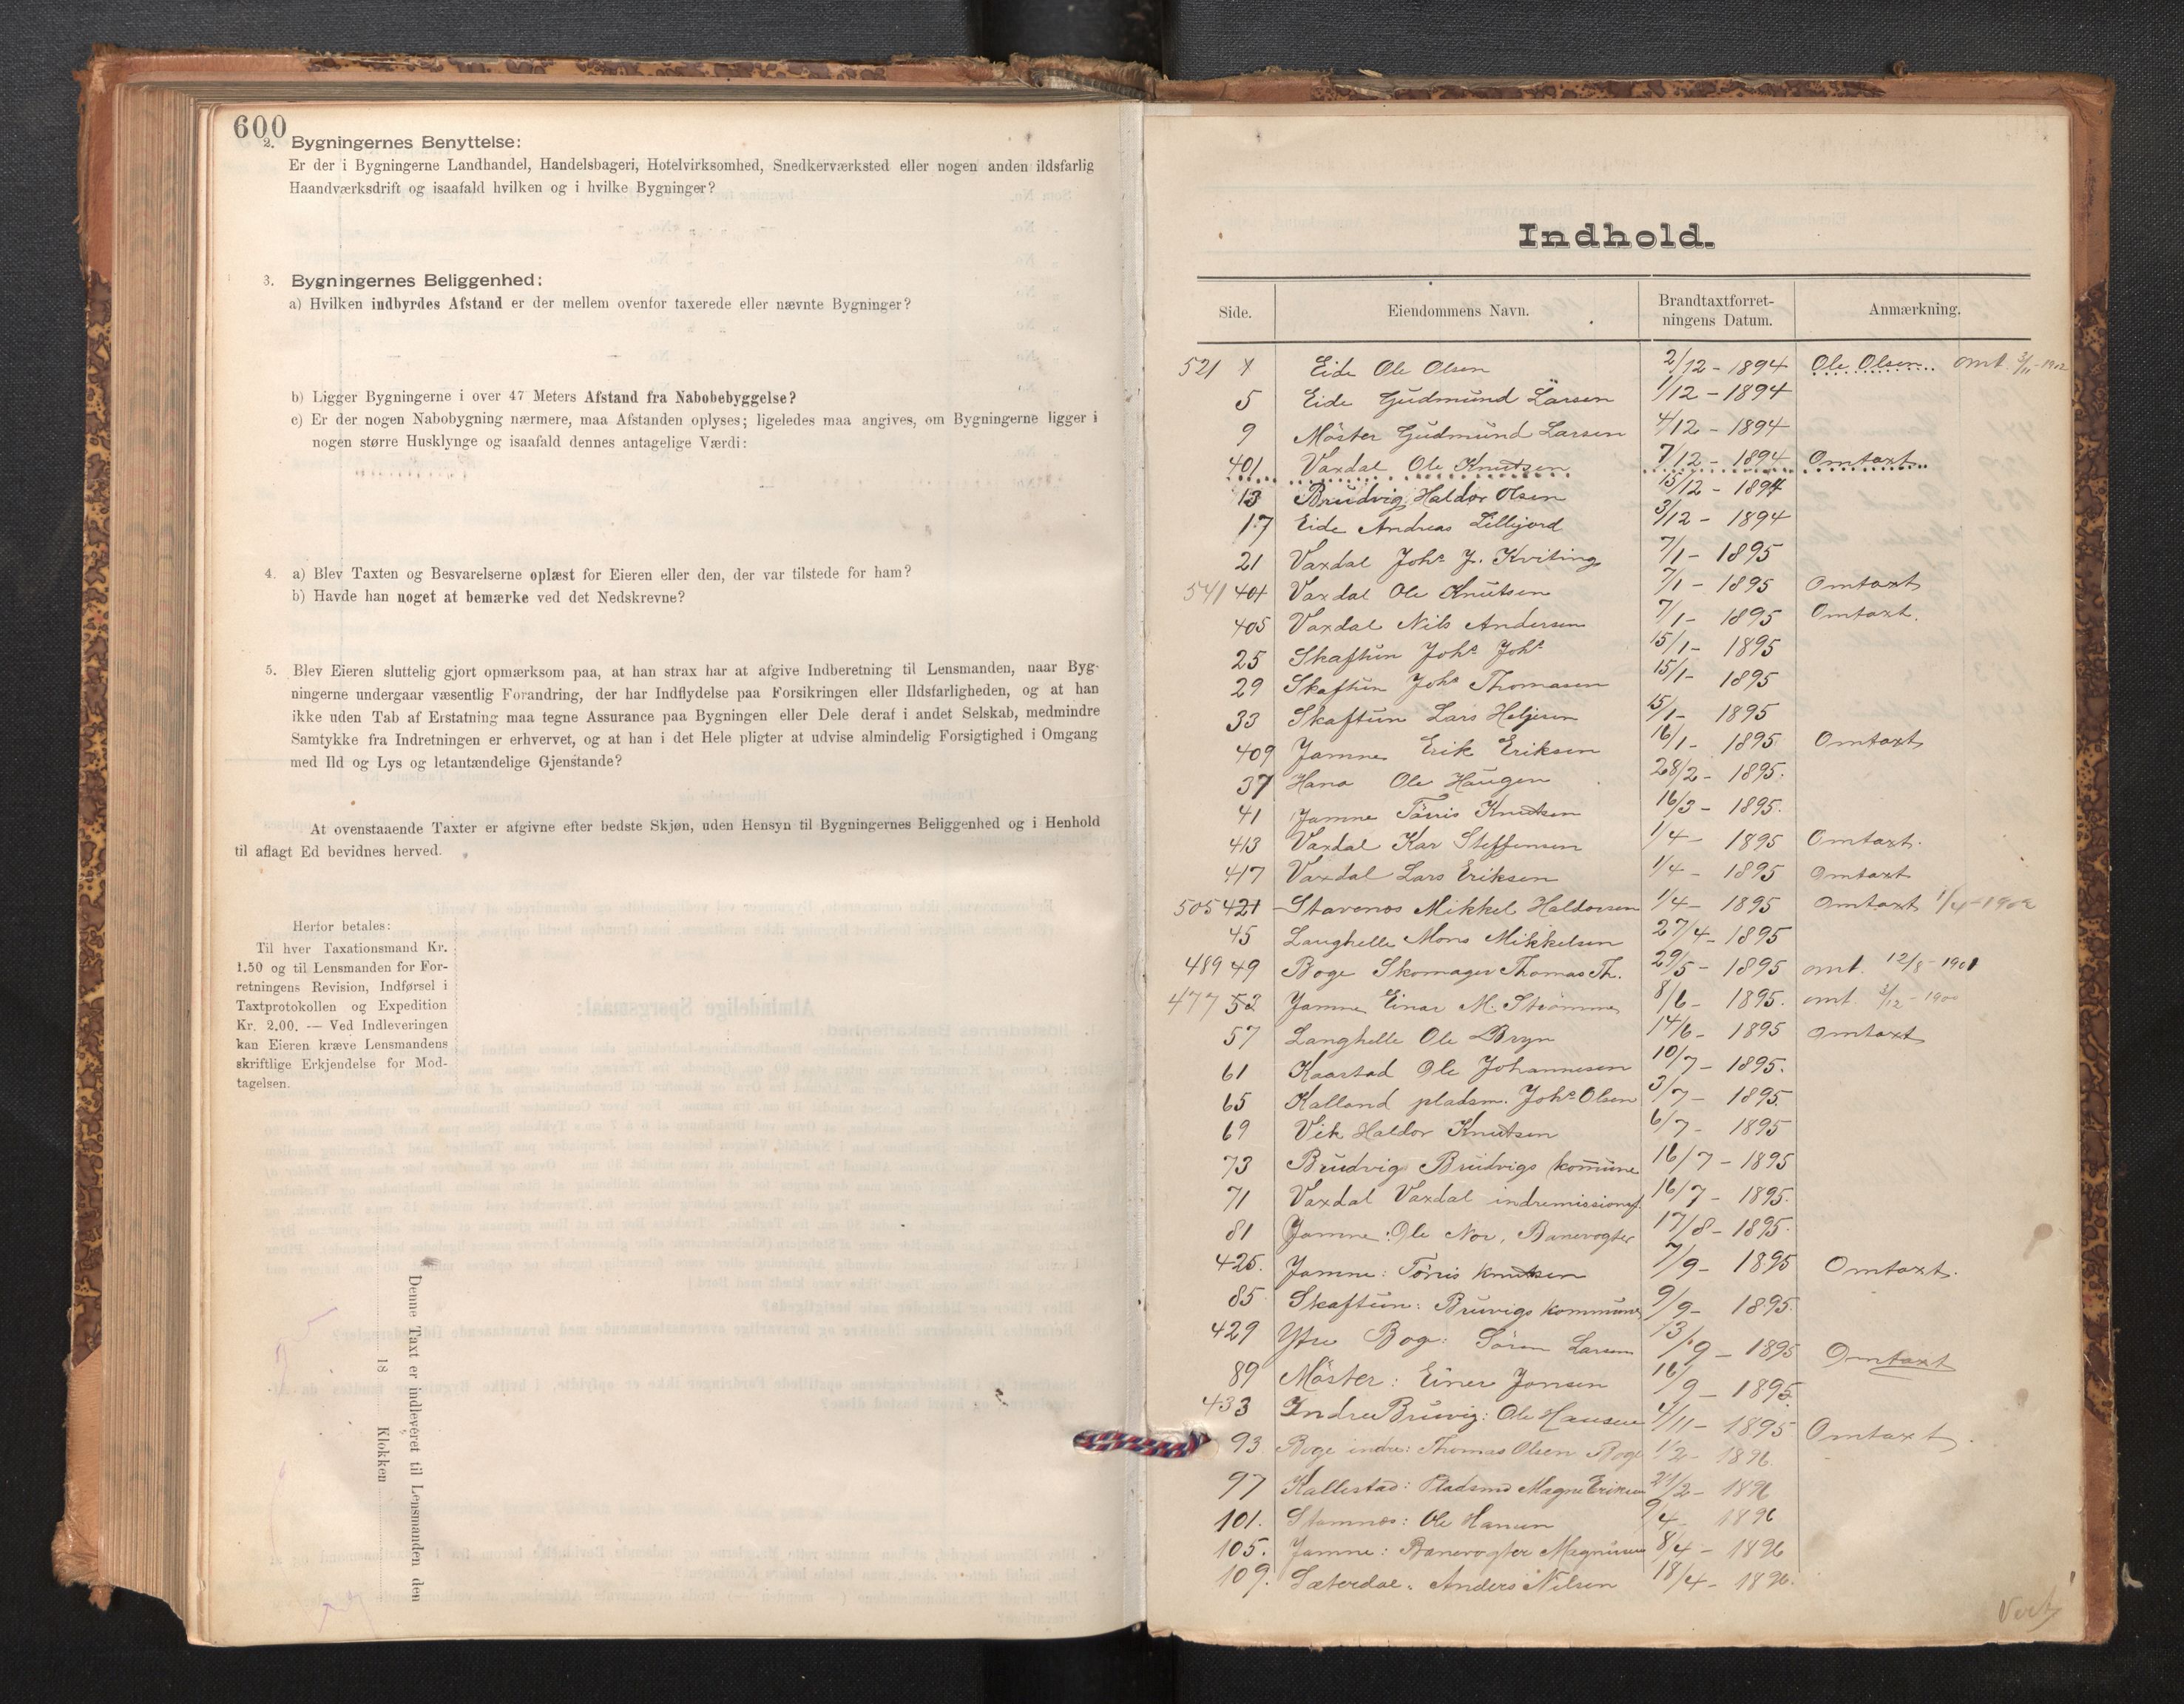 600
2. Bygningernes Benyttelse:
Er der i Bygningerne Landhandel, Handelsbageri, Hotelvirksomhed, Snedkerværksted eller nogen anden ildsfarlig
Haandværksdrift og isaafald hvilken og i hvilke Bygninger?
3. Bygningernes Beliggenhed:
a) Hvilken indbyrdes Afstand er der mellem ovenfor taxerede eller nævnte Bygninger?
b) Ligger Bygningerne i over 47 Meters Afstand fra Nabobebyggelse?
c) Er der nogen Nabobygning nærmere, maa Afstanden oplyses; ligeledes maa angives, om Bygningerne ligger i
nogen større Husklynge og isaafald dennes antagelige Værdi:
4. a) Blev Taxten og Besvarelserne oplæst for Eieren eller den, der var tilstede for ham?
b) Havde han noget at bemærke ved det Nedskrevne?
5. Blev Eieren sluttelig gjort opmærksom paa, at han strax har at afgive Indberetning til Lensmanden, naar Byg-
ningerne undergaar væsentlig Forandring, der har Indflydelse paa Forsikringen eller Ildsfarligheden, og at han
ikke uden Tab af Erstatning maa tegne Assurance paa Bygningen eller Dele deraf i andet Selskab, medmindre
Samtykke fra Indretningen er erhvervet, og at han i det Hele pligter at udvise almindelig Forsigtighed i Omgang
med Ild og Lys og letantændelige Gjenstande?
At ovenstaaende Taxter er afgivne efter bedste Skjøn, uden Hensyn til Bygningernes Beliggenhed og i Henhold
til aflagt Ed bevidnes herved.
Herfor betales:
Til hver Taxationsmand Kr.
1.50 og til Lensmanden for For-
retningens Revision, Indførsel i
Taxtprotokollen og Expedition
Kr. 2.00. — Ved Indleveringen
kan Eieren kræve Lensmandens
skriftlige Erkjendelse for Mod-
tagelsen.
Denne Taxt er indleveret til Lensmanden den
18 Klokken
Indhold.
Side. Eiendommens Navn. Brandtaxtforret-
ningens Datum. Anmærkning.
521 Eide Ole Olsen 2/12 - 1894 Ole Olsen omt. 3/11 - 1902
5 Eide Gudmund Larsen 1/12 - 1894
9 Möster Gudmund Larsen 4/12 - 1894
401 Vaxdal Ole Knutsen 7/12 - 1894 Omtaxt
13 Brudvig Haldor Olsen 15/12 - 1894
17 Eide Andreas Lillejord 3/12 - 1894
21 Vaxdal Johs J. Kviting 7/1 - 1895
541 401 Vaxdal Ole Knutsen 7/1 - 1895 Omtaxt
405 Vaxdal Nils Andersen 7/1 - 1895 Omtaxt.
25 Skaftun Johs Johs 15/1 - 1895
29 Skaftun Johs Thomasen 15/1 - 1895
33 Skaftun Lars Helgesen 15/1 - 1895
409 Jamne Erik Eriksen 16/1 - 1895 Omtaxt
37 Hana Ole Haugen 28/2 - 1895.
41 Jamne Törris Knutsen 16/3 - 1895.
413 Vaxdal Kar Steffensen 1/4 - 1895 Omtaxt.
417 Vaxdal Lars Eriksen 1/4 - 1895 Omtaxt
505 421 Stavenes Mikkel Haldorsen 1/4 - 1895 Omtaxt 1/4 - 1902
45 Langhelle Mons Mikkelsen 27/4 - 1895
489 49 Boge Skomager Thomas Th. 29/5 - 1895 omt. 12/8 - 1901
477 53 Jamne Einar M. Strömme 8/6 - 1895. omt. 3/12 - 1900
57 Langhelle Ole Bryn 14/6 - 1895 Omtaxt
61 Kaarstad Ole Johannesen 10/7 - 1895.
65 Kalland pladsm. Johs Olsen 3/7 - 1895
69 Vik Haldor Knutsen 6/7 - 1895
73 Brudvig Brudvigs kommune 16/7 - 1895
71 Vaxdal Vaxdal indremissionsf. 16/7 - 1895.
81 Jamne: Ole Nov, Banevogter 17/8 - 1895.
425. Jamne: Törris Knutsen 7/9 - 1895 Omtaxt.
85 Skaftun: Bruvigs kommune 9/9 - 1895.
429 Ytre Boge: Sören Larsen 13/9 - 1895 Omtaxt
89 Möster: Einer Jonsen 16/9 - 1895.
433 Indre Bruvig: Ole Hansen 4/11 - 1895 Omtaxt.
93 Boge indre: Thomas Olsen Boge 1/2 - 1896.
97 Kallestad: Pladsmd Magne Eriksen 21/2 - 1896
101. Stamnes: Ole Hansen 9/4 - 1896
105. Jamne: Banevogter Magnusen 8/4 - 1896
109. Sæterdal: Anders Nilsen 18/4 - 1896.
Vert